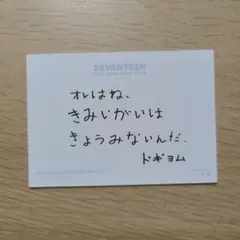 SEVENTEEN
オレはね、
きみいがいは
きょうみないんだ。
ドギョム